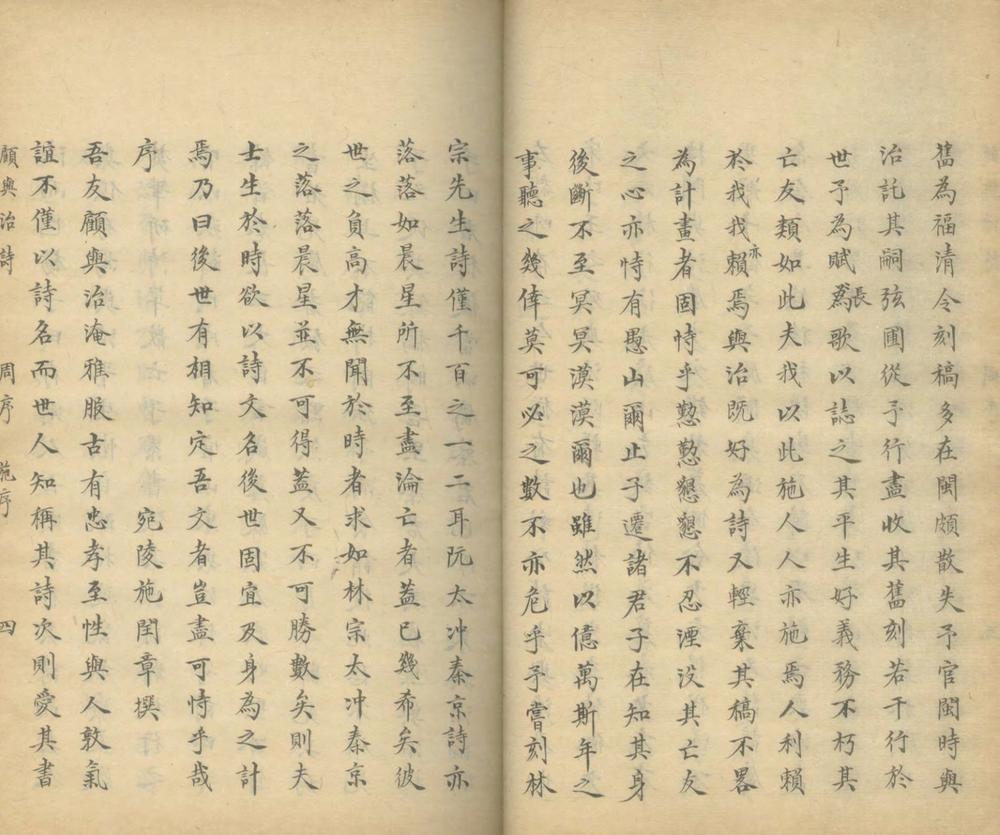 舊為福清令刻稿多在閩頗散失予官閩時與
治託其嗣弦圃從予行盡收其舊刻若干行於
世予為賦為長歌以誌之其平生好義務不朽其
亡友類如此夫我以此施人人亦施焉人利賴
於我我亦賴焉與治既好為詩又輕棄其稿不畧
為計畫者固恃乎懃懃懇懇不忍湮没其亡友
之心亦恃有愚山爾止子遷諸君子在知其身
後斷不至冥冥漠漠爾也雖然以億萬斯年之
事聽之幾倖莫可必之數不亦危乎予嘗刻林
宗先生詩僅千百之一二耳阮太冲秦京詩亦
落落如晨星所不至盡淪亡者蓋已幾希矣彼
世之負高才無聞於時者求如林宗太冲秦京
之落落晨星並不可得蓋又不可勝數矣則夫
士生於時欲以詩文名後世固宜及身為之計
焉乃曰後世有相知定吾文者豈盡可恃乎哉
序 宛陵施閏章撰
吾友顧與治淹雅服古有忠孝至性與人敦氣
誼不僅以詩名而世人知稱其詩次則愛其書
顧與治詩 周序 施序 四